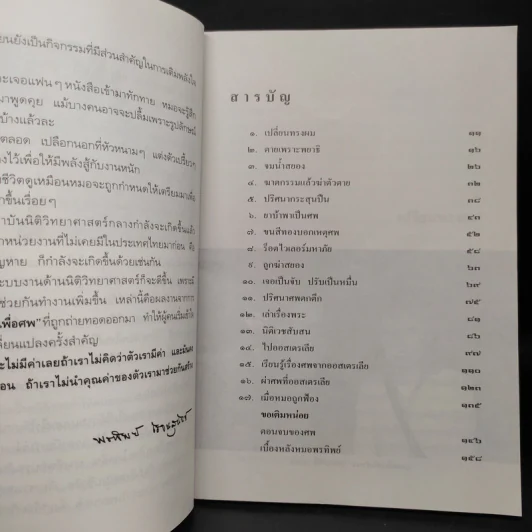 ยนยังเป็นกิจกรรมที่มีส่วนสำคัญในการเติมพลังใจ
ะเจอแฟนๆ หนังสือเข้ามาทักทาย หมอจะรู้สึก
มาพูดคุย แม้บางคนอาจจะปลื้มเพราะรูปลักษณ์
บ้างแล้วละ
ตลอด เปลือกนอกที่หัวหนามๆ แต่งตัวเปรี้ยวๆ
งไว้เพื่อให้มีพลังสู้กับงานหนัก
ชีวิตดูเหมือนหมอจะถูกกำหนดให้เตรียมมาเพื่อ
ขึ้นเรื่อยๆ
าบันนิติวิทยาศาสตร์กลางกำลังจะเกิดขึ้นแล้ว
าหน่วยงานที่ไม่เคยมีในประเทศไทยมาก่อน คือ
ญหาย ก็กำลังจะเกิดขึ้นด้วยเช่นกัน
ะบบงานด้านนิติวิทยาศาสตร์ก็จะดีขึ้น เพราะมี
ช่วยกันทำงานเพิ่มขึ้น เหล่านี้คือผลงานจากการ
เพื่อศพ" ที่ถูกถ่ายทอดออกมา ทำให้ผู้คนเริ่มเข้าใจ
ลี่ยนแปลงครั้งสำคัญ
ะไม่มีค่าเลยถ้าเราไม่คิดว่าตัวเรามีค่า และมัน
อน ถ้าเราไม่นำคุณค่าของตัวเรามาช่วยกัน
พรทิพย์ โรจนสุนันท์
สารบัญ
๑. เปลี่ยนทรงผม ๑๑
๒. ตายเพราะพยาธิ ๑๖
๓. จมน้ำสยอง ๒๖
๔. ฆาตกรรมแล้วฆ่าตัวตาย ๓๒
๕. ปริศนากระสุนปืน ๓๘
๖. ยาบ้าพาเป็นศพ ๔๓
๗. ขนสีทองบอกเหตุศพ ๕๒
๘. ร็อตไวเลอร์มหาภัย ๕๘
๙. ถูกฆ่าสยอง ๖๓
๑๐. เจอเป็นจับ ปรับเป็นหมื่น ๖๙
๑๑. ปริศนาศพตกตึก ๗๕
๑๒. เล่าเรื่องพระ ๘๑
๑๓. นิติเวชสับสน ๘๖
๑๔. ไปออสเตรเลีย ๙๗
๑๕. เรียนรู้เรื่องศพจากออสเตรเลีย ๑๑๐
๑๖. ผ่าศพที่ออสเตรเลีย ๑๒๓
๑๗. เมื่อหมอถูกฟ้อง ๑๓๕
ขอเติมหน่อย
ตอนจบของศพ ๑๔๖
เบื้องหลังหมอพรทิพย์ ๑๕๘